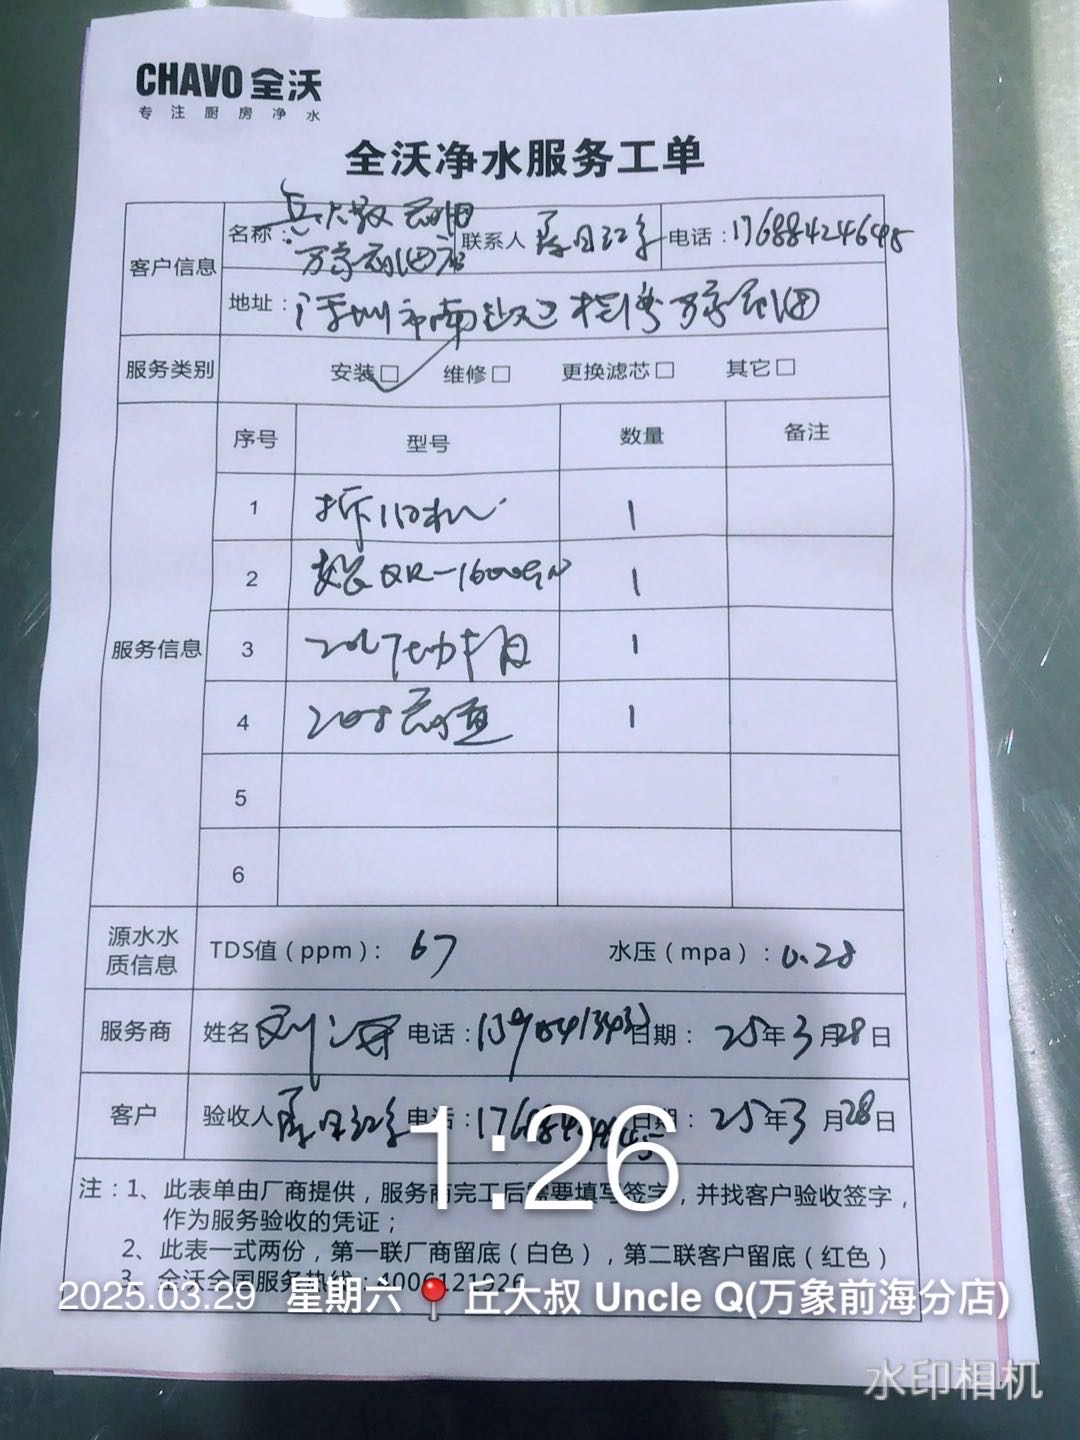 CHAVO 全沃
专注厨房净水
全沃净水服务工单
客户信息
名称：
万象前海店
联系人
电话：17688424645
地址：深圳市南山区桂湾万象前海
服务类别
安装□ 维修□ 更换滤芯□ 其它□
服务信息
序号 型号 数量 备注
1 拆110机 1
2 装QR-1600GN 1
3 1
4 1
5
6
源水水
质信息
TDS值（ppm）：67 水压（mpa）：0.28
服务商 姓名 刘 电话： 日期：25年3月28日
客户 验收人 电话： 日期：25年3月28日
1:26
注：1、此表单由厂商提供，服务商完工后需要填写签字，并找客户验收签字，
作为服务验收的凭证；
2、此表一式两份，第一联厂商留底（白色），第二联客户留底（红色）
3、全沃全国服务热线：4006121926
2025.03.29 星期六 丘大叔 Uncle Q(万象前海分店)
水印相机